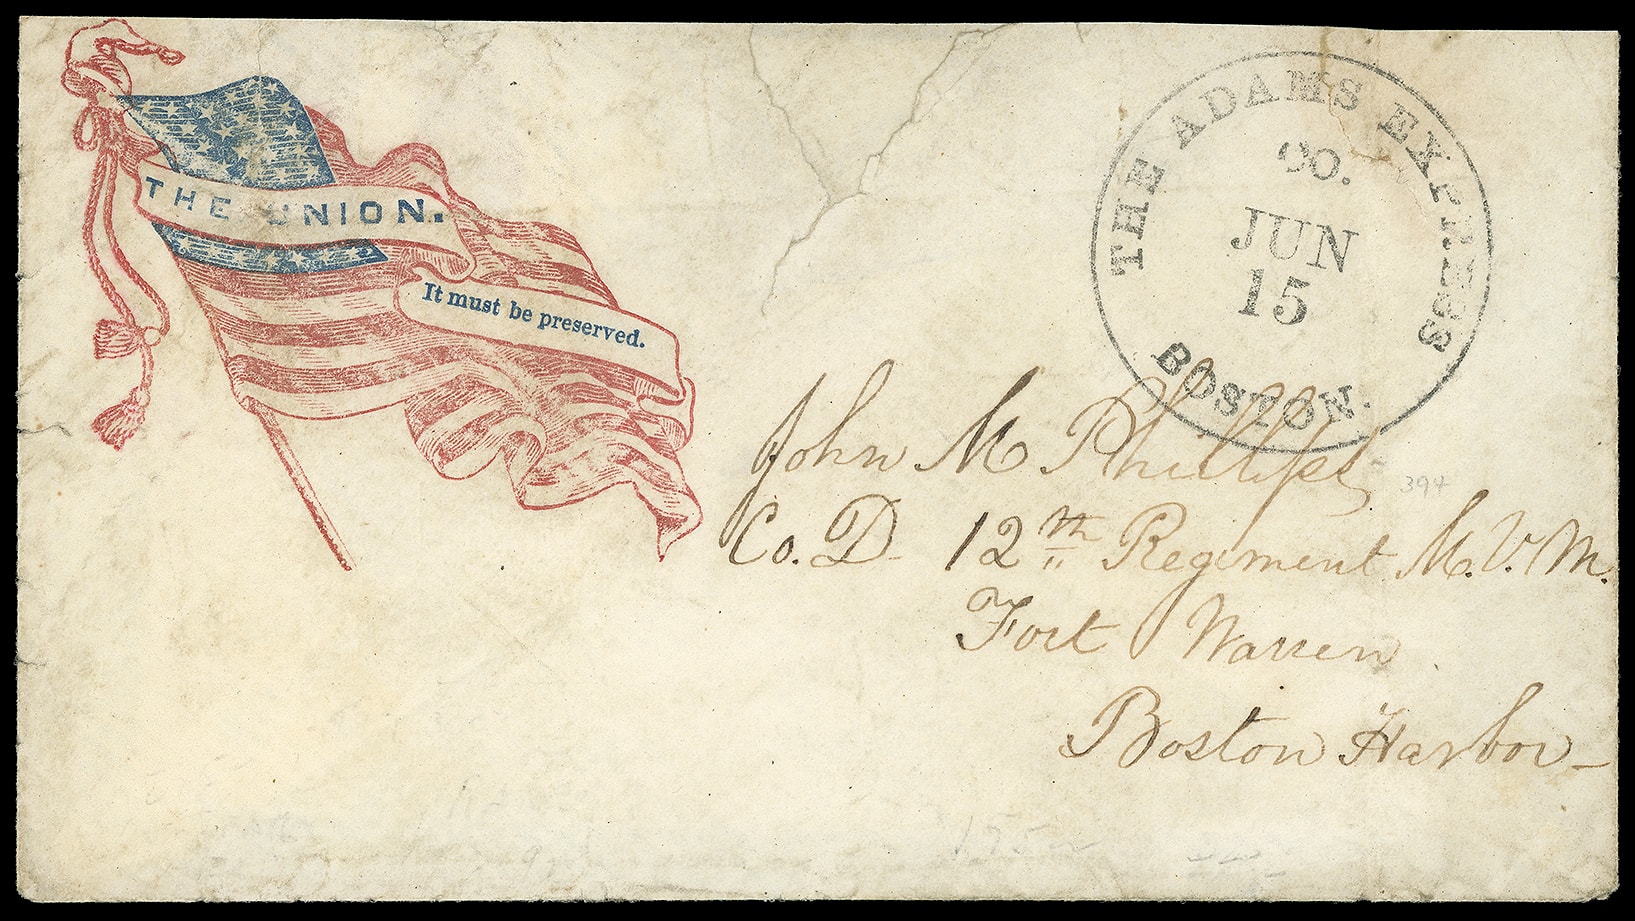 THE UNION.
It must be preserved.
THE ADAMS EXPRESS
CO.
JUN
15
BOSTON.
John M Phillips
394
Co. D 12th Regiment M.V.M.
Fort Warren
Boston Harbor